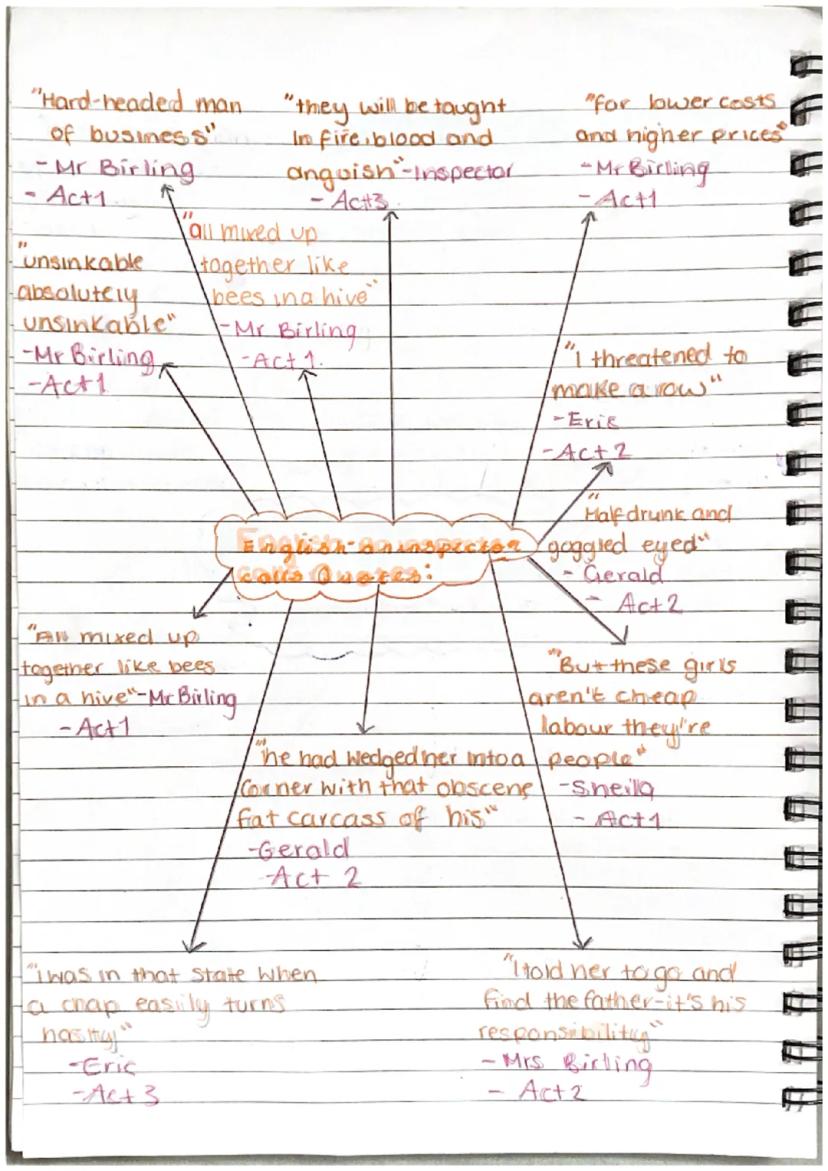 "Hard-headed man
of business"
- Mr Birling
- Act 1
"they will be taught
In fire, blood and
anguish" - Inspector
- Act 3
"for lower costs
and higher prices"
- Mr Birling
- Act 1
"all mixed up
together like
bees in a hive"
- Mr Birling
- Act 1.
"unsinkable
absolutely
unsinkable"
- Mr Birling
- Act 1
"I threatened to
make a row"
- Eric
- Act 2
"Half drunk and
goggled eyed"
- Gerald
- Act 2
English - an inspector
calls Quotes:
"All mixed up
together like bees
in a hive" - Mr Birling
- Act 1
"But these girls
aren't cheap
labour they're
people"
- Sheila
- Act 1
"he had wedged her into a
corner with that obscene
fat carcass of his"
- Gerald
- Act 2
"i was in that state when
a chap easily turns
nasty"
- Eric
- Act 3
"I told her to go and
find the father - it's his
responsibility"
- Mrs Birling
- Act 2